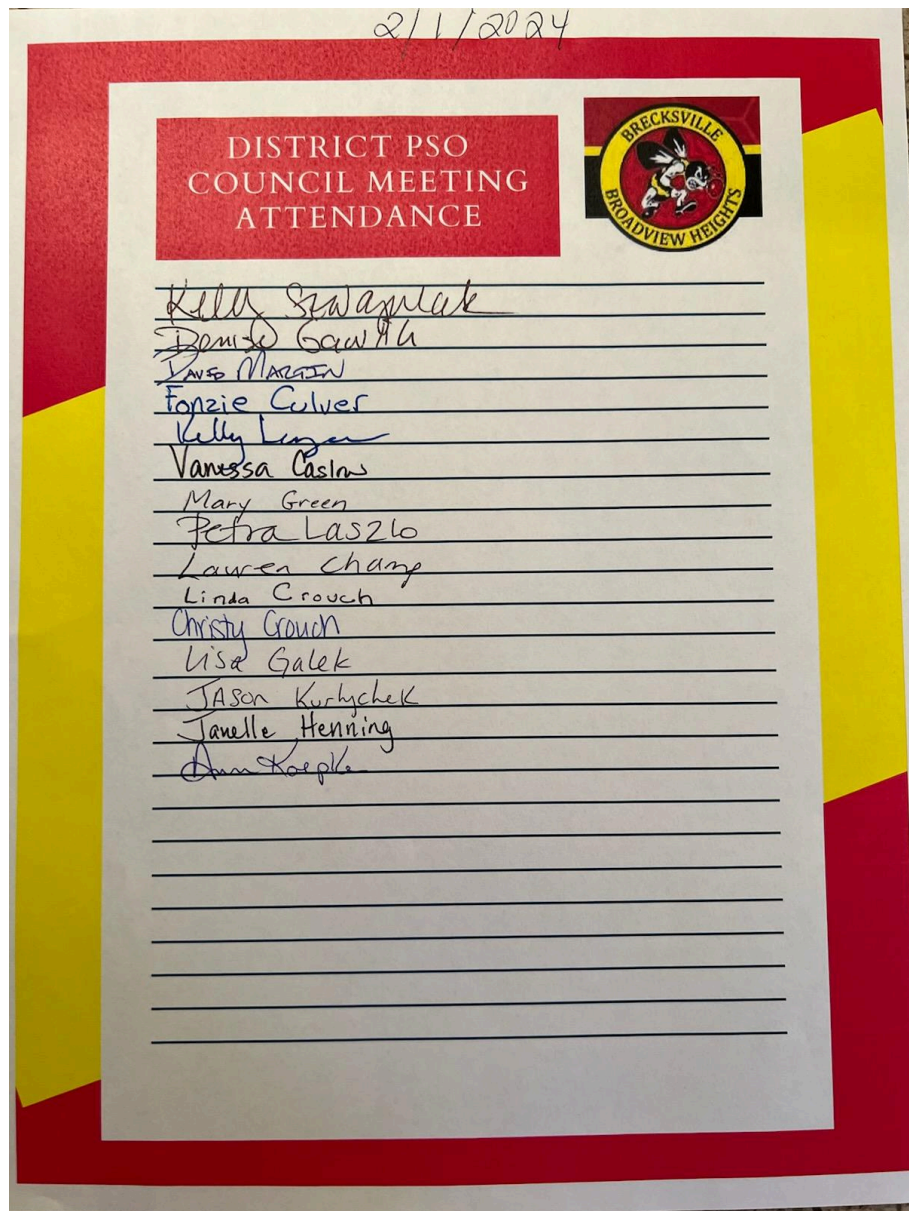 2/1/2024
DISTRICT PSO
COUNCIL MEETING
ATTENDANCE
BRECKSVILLE
BROADVIEW HEIGHTS
Kelly
Denise
DAVID MARTIN
Fonzie Culver
Kelly
Vanessa
Mary Green
Petra Laszlo
Lauren Chang
Linda Crouch
Christy Crouch
Lisa Galek
JASON Kurlychek
Janelle Henning
Ann Koepke